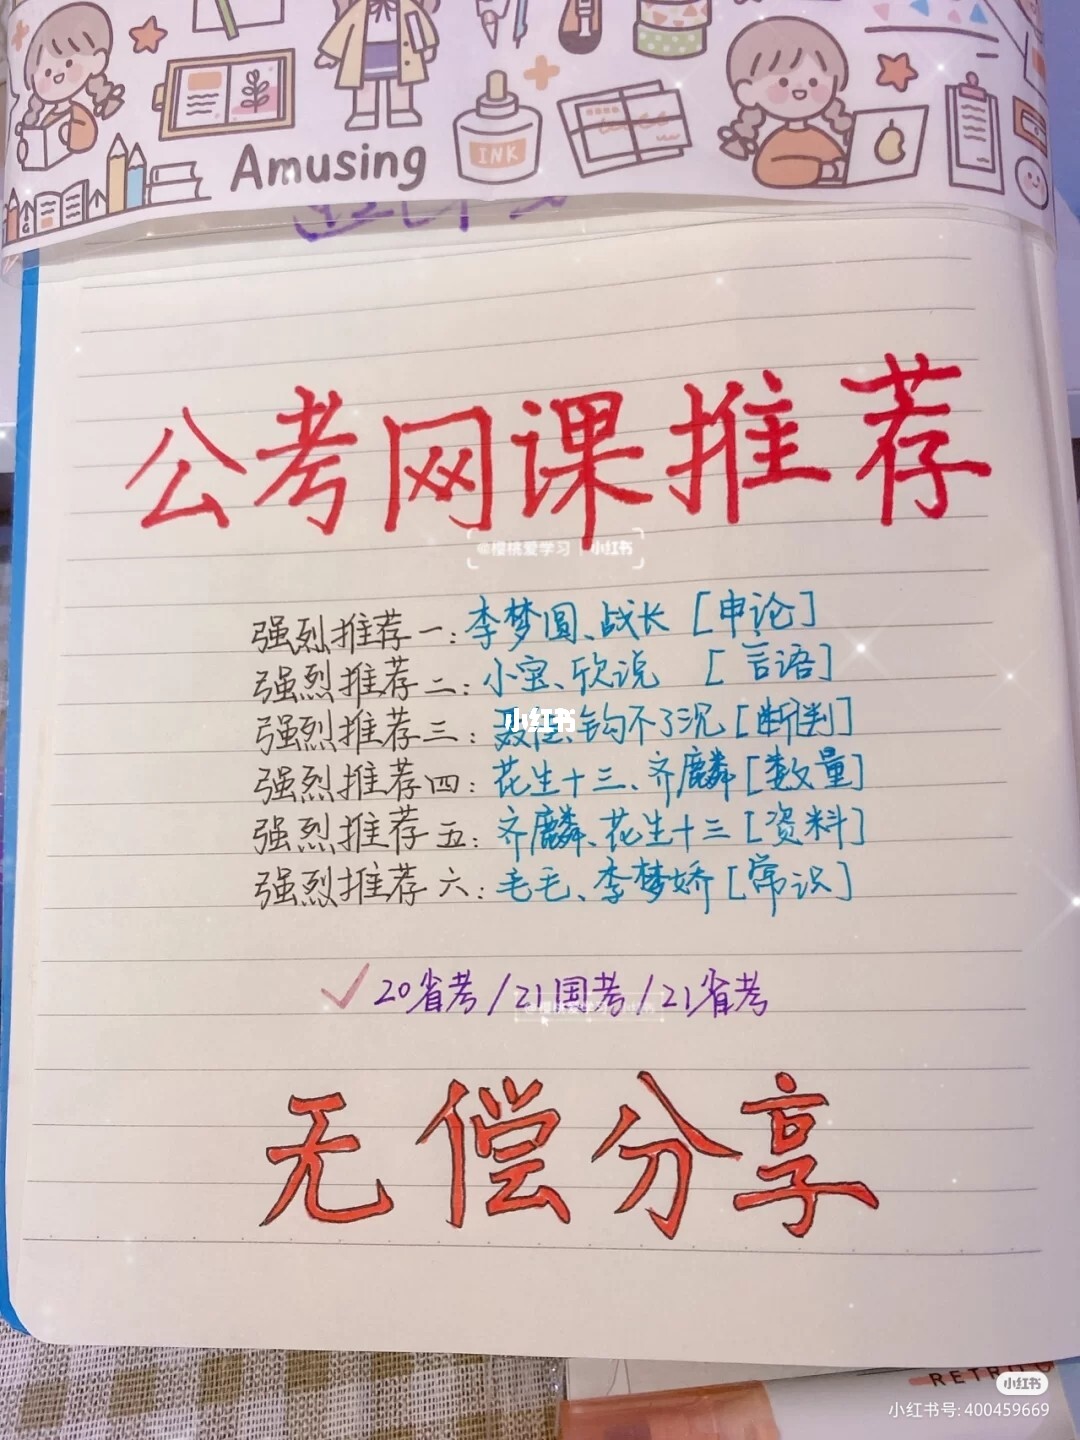 Amusing
INK
公考网课推荐
@樱桃爱学习 | 小红书
强烈推荐一:李梦圆、战长[申论]
强烈推荐二:小宝、欣说 [言语]
强烈推荐三:聂佳、钩不了沉[断判]
小红书
强烈推荐四:花生十三、齐麟[数量]
强烈推荐五:齐麟、花生十三[资料]
强烈推荐六:毛毛、李梦娇[常识]
✓20省考/21国考/21省考
无偿分享
RETRO
小红书
小红书号:400459669